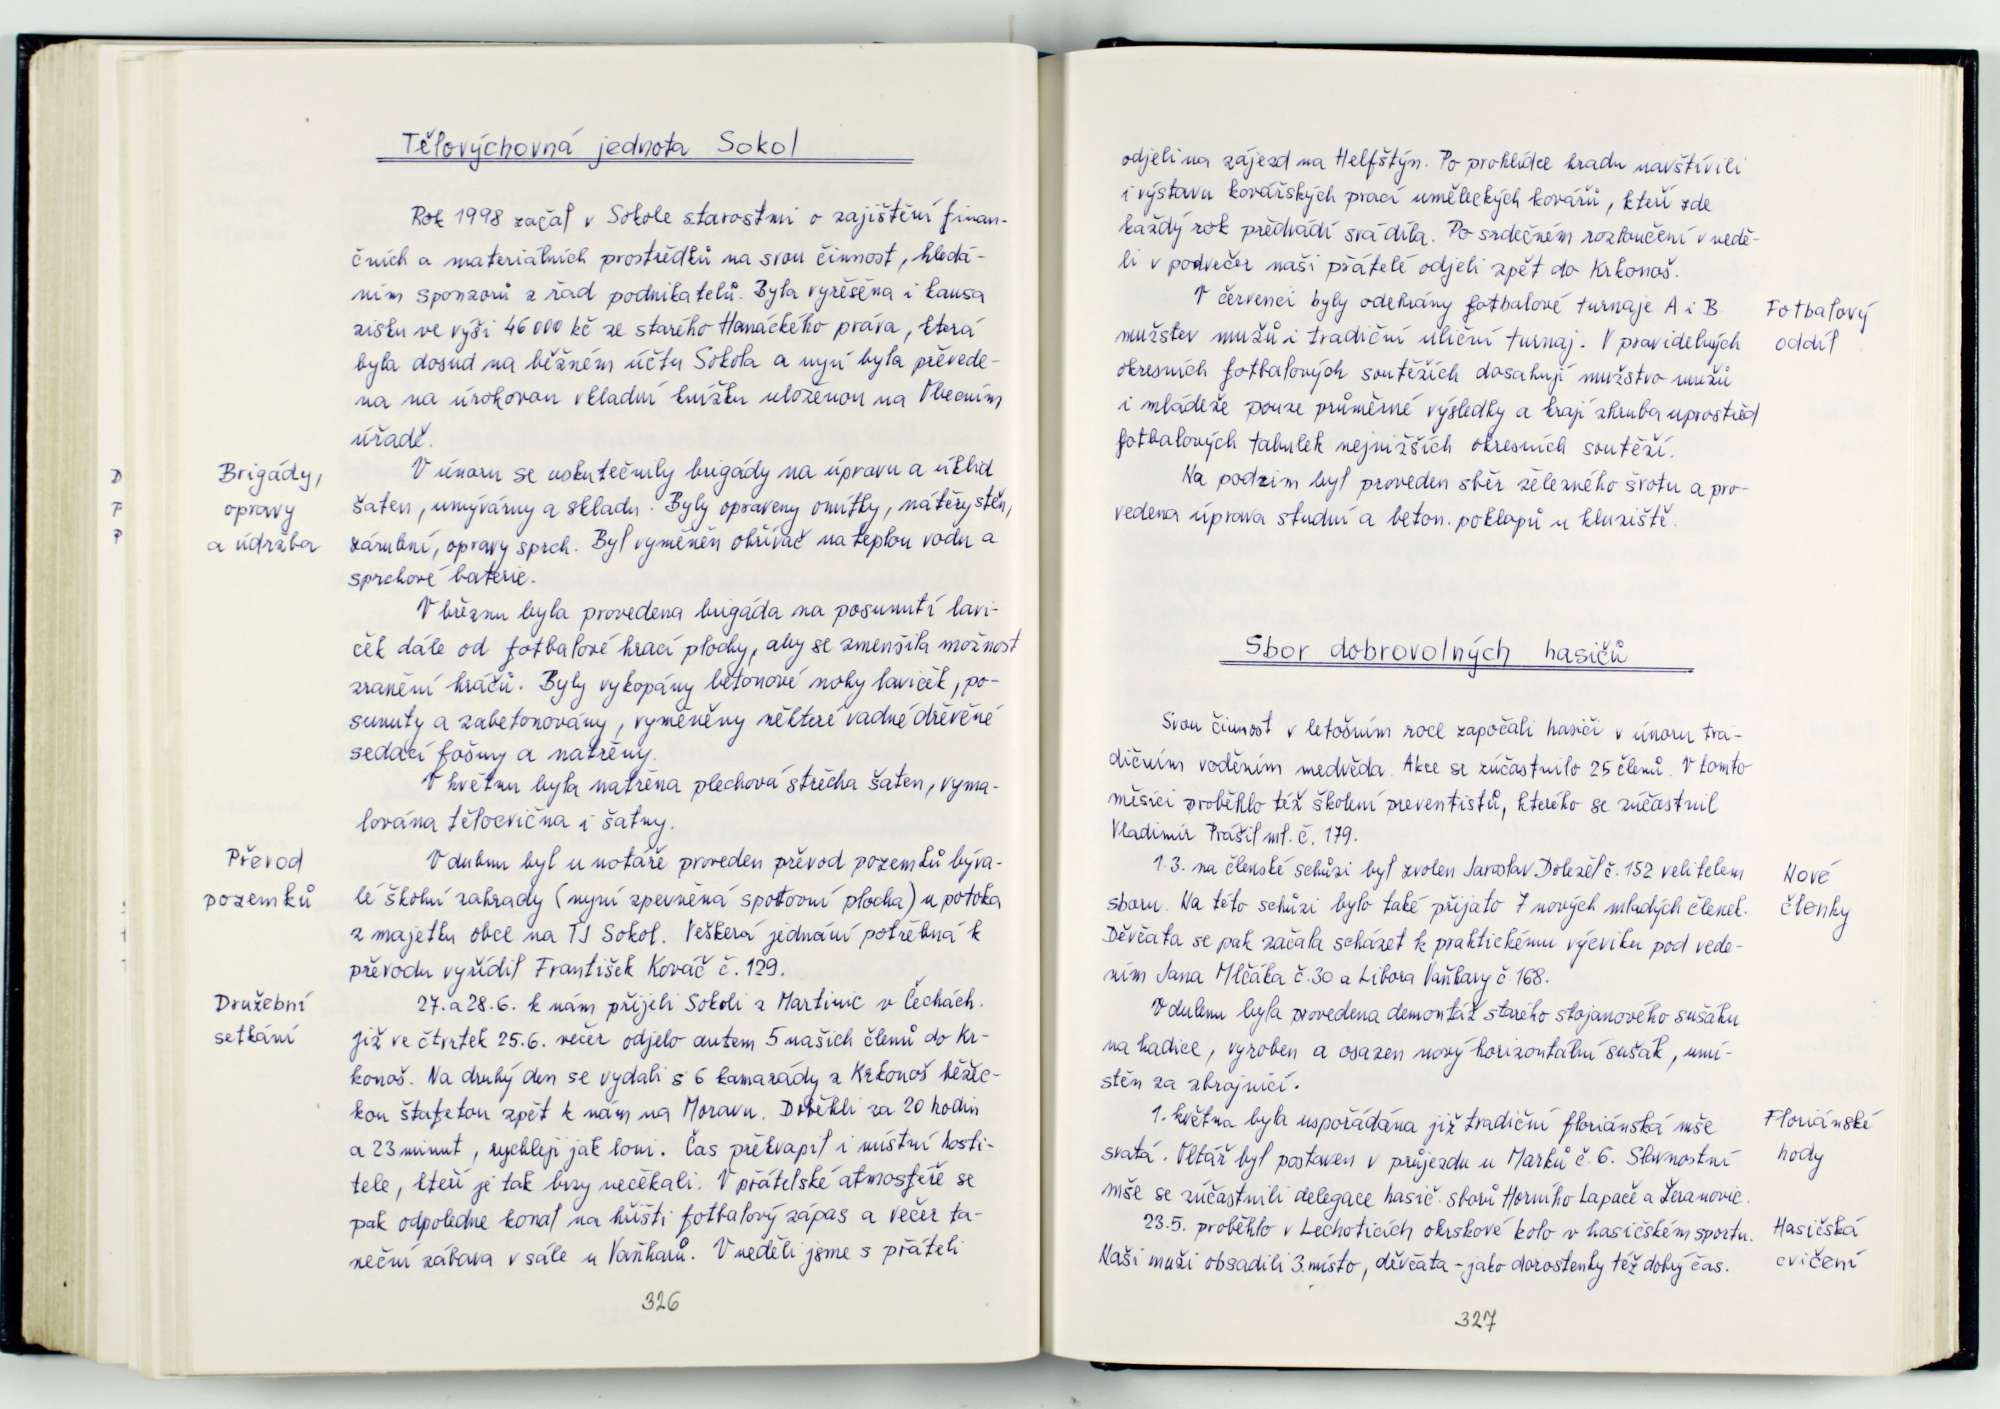 Tělovýchovná jednota Sokol
Rok 1998 začal v Sokole starostmi o zajištění finan-
čních a materiálních prostředků na svou činnost, hledá-
ním sponzorů z řad podnikatelů. Byla vyřešena i kausa
zisku ve výši 46 000 kč ze starého Hanáckého práva, která
byla dosud na běžném účtu Sokola a nyní byla převede-
na na úrokovou vkladní knížku uloženou na Obecním
úřadě.
Brigády,
opravy
a údržba
V únoru se uskutečnily brigády na úpravu a úklid
šaten, umývárny a skladu. Byly opraveny omítky, nátěry stěn,
zárubní, opravy sprch. Byl vyměněn ohřívač na teplou vodu a
sprchové baterie.
V březnu byla provedena brigáda na posunutí lavi-
ček dále od fotbalové hrací plochy, aby se zmenšila možnost
zranění hráčů. Byly vykopány betonové nohy laviček, po-
sunuty a zabetonovány, vyměněny některé vadné dřevěné
sedací fošny a natřeny.
V květnu byla natřena plechová střecha šaten, vyma-
lována tělocvična i šatny.
Převod
pozemků
V dubnu byl u notáře proveden převod pozemků býva-
lé školní zahrady (nyní zpevněná spotovní plocha) u potoka
z majetku obce na TJ Sokol. Veškerá jednání potřebná k
převodu vyřídil František Kováč č. 129.
Družební
setkání
27. a 28.6. k nám přijeli Sokoli z Martinic v Čechách.
Již ve čtvrtek 25.6. večer odjelo autem 5 našich členů do Kr-
konoš. Na druhý den se vydali s 6 kamarády z Krkonoš běžec-
kou štafetou zpět k nám na Moravu. Doběhli za 20 hodin
a 23 minut, rychleji jak loni. Čas překvapil i místní hosti-
tele, kteří je tak brzy nečekali. V přátelské atmosféře se
pak odpoledne konal na hřišti fotbalový zápas a večer ta-
neční zábava v sále u Vaňharů. V neděli jsme s přáteli
326
odjeli na zájezd na Helfštýn. Po prohlídce hradu navštívili
i výstavu kovářských prací uměleckých kovářů, kteří zde
každý rok předvádí svá díla. Po srdečném rozloučení v nedě-
li v podvečer naši přátelé odjeli zpět do Krkonoš.
Fotbalový
oddíl
V červenci byly odehrány fotbalové turnaje A i B
mužstev mužů i tradiční uliční turnaj. V pravidelných
okresních fotbalových soutěžích dosahují mužstvo mužů
i mládeže pouze průměrné výsledky a hrají zhruba uprostřed
fotbalových tabulek nejnižších okresních soutěží.
Na podzim byl proveden sběr železného šrotu a pro-
vedena úprava studní a beton. poklopů u kluziště.
Sbor dobrovolných hasičů
Svou činnost v letošním roce započali hasiči v únoru tra-
dičním voděním medvěda. Akce se zúčastnilo 25 členů. V tomto
měsíci proběhlo též školení preventistů, kterého se zúčastnil
Vladimír Prášil ml. č. 179.
Nové
členky
1.3. na členské schůzi byl zvolen Jaroslav Doležel č. 152 velitelem
sboru. Na této schůzi bylo také přijato 7 nových mladých členek.
Děvčata se pak začala scházet k praktickému výcviku pod vede-
ním Jana Mlčáka č. 30 a Libora Vaňhary č. 168.
V dubnu byla provedena demontáž starého stojanového sušáku
na hadice, vyroben a osazen nový horizontální sušák, umí-
stěn za zbrojnicí.
Floriánské
hody
1. května byla uspořádána již tradiční floriánská mše
svatá. Oltář byl postaven v průjezdu u Marků č. 6. Slavnostní
mše se zúčastnili delegace hasič. sborů Horního Lapače a Žeranovic.
Hasičská
cvičení
23.5. proběhlo v Lechoticích okrskové kolo v hasičském sportu.
Naši muži obsadili 3. místo, děvčata - jako dorostenky též dobrý čas.
327